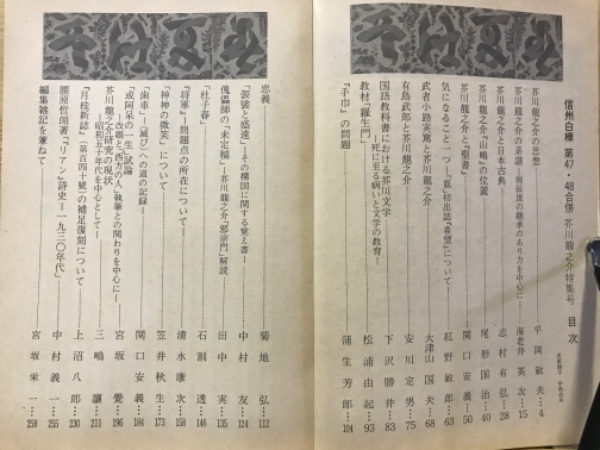 信州白樺 第47・48合併 芥川龍之介特集号 目次
芥川龍之介の思想……平岡敏夫…4
芥川龍之介の系譜―堀辰雄の継承のあり方を中心に―……海老井英次…15
芥川龍之介と日本古典……志村有弘…28
芥川龍之介『山鴫』の位置……尾形国治…40
芥川龍之介と『聖書』……関口安義…50
気になること一つ―「孤」初出誌『希望』について―……紅野敏郎…63
武者小路実篤と芥川龍之介……大津山国夫…68
有島武郎と芥川龍之介……安川定男…75
国語教科書における芥川文学……下沢勝井…83
教材「羅生門」―死に至る病いと文学の教育―……松浦由起…93
『手巾』の問題……蒲生芳郎…104
忠義……菊地弘…112
「袈裟と盛遠」―その構図に関する覚え書―……中村友…124
傀儡師の「未定稿」―芥川龍之介「邪宗門」解説……田中実…135
「杜子春」……石割透…146
『将軍』―問題点の所在について―……清水康次…158
「神神の微笑」について……笠井秋生…173
「歯車」―〈滅び〉への道の記録―……関口安義…184
「或阿呆の一生」試論
―改題と「西方の人」執筆との関わりを中心に―……宮坂覺…196
芥川龍之介研究の現状
―昭和五十年代を中心として―……三嶋譲…211
『月桂新誌』(三百四十号)の補足復刻について……上沼八郎…230
腰原哲朗著『リアン』詩史―一九三〇年代』……中村義一…255
編集雑記を兼ねて……宮坂栄一…259